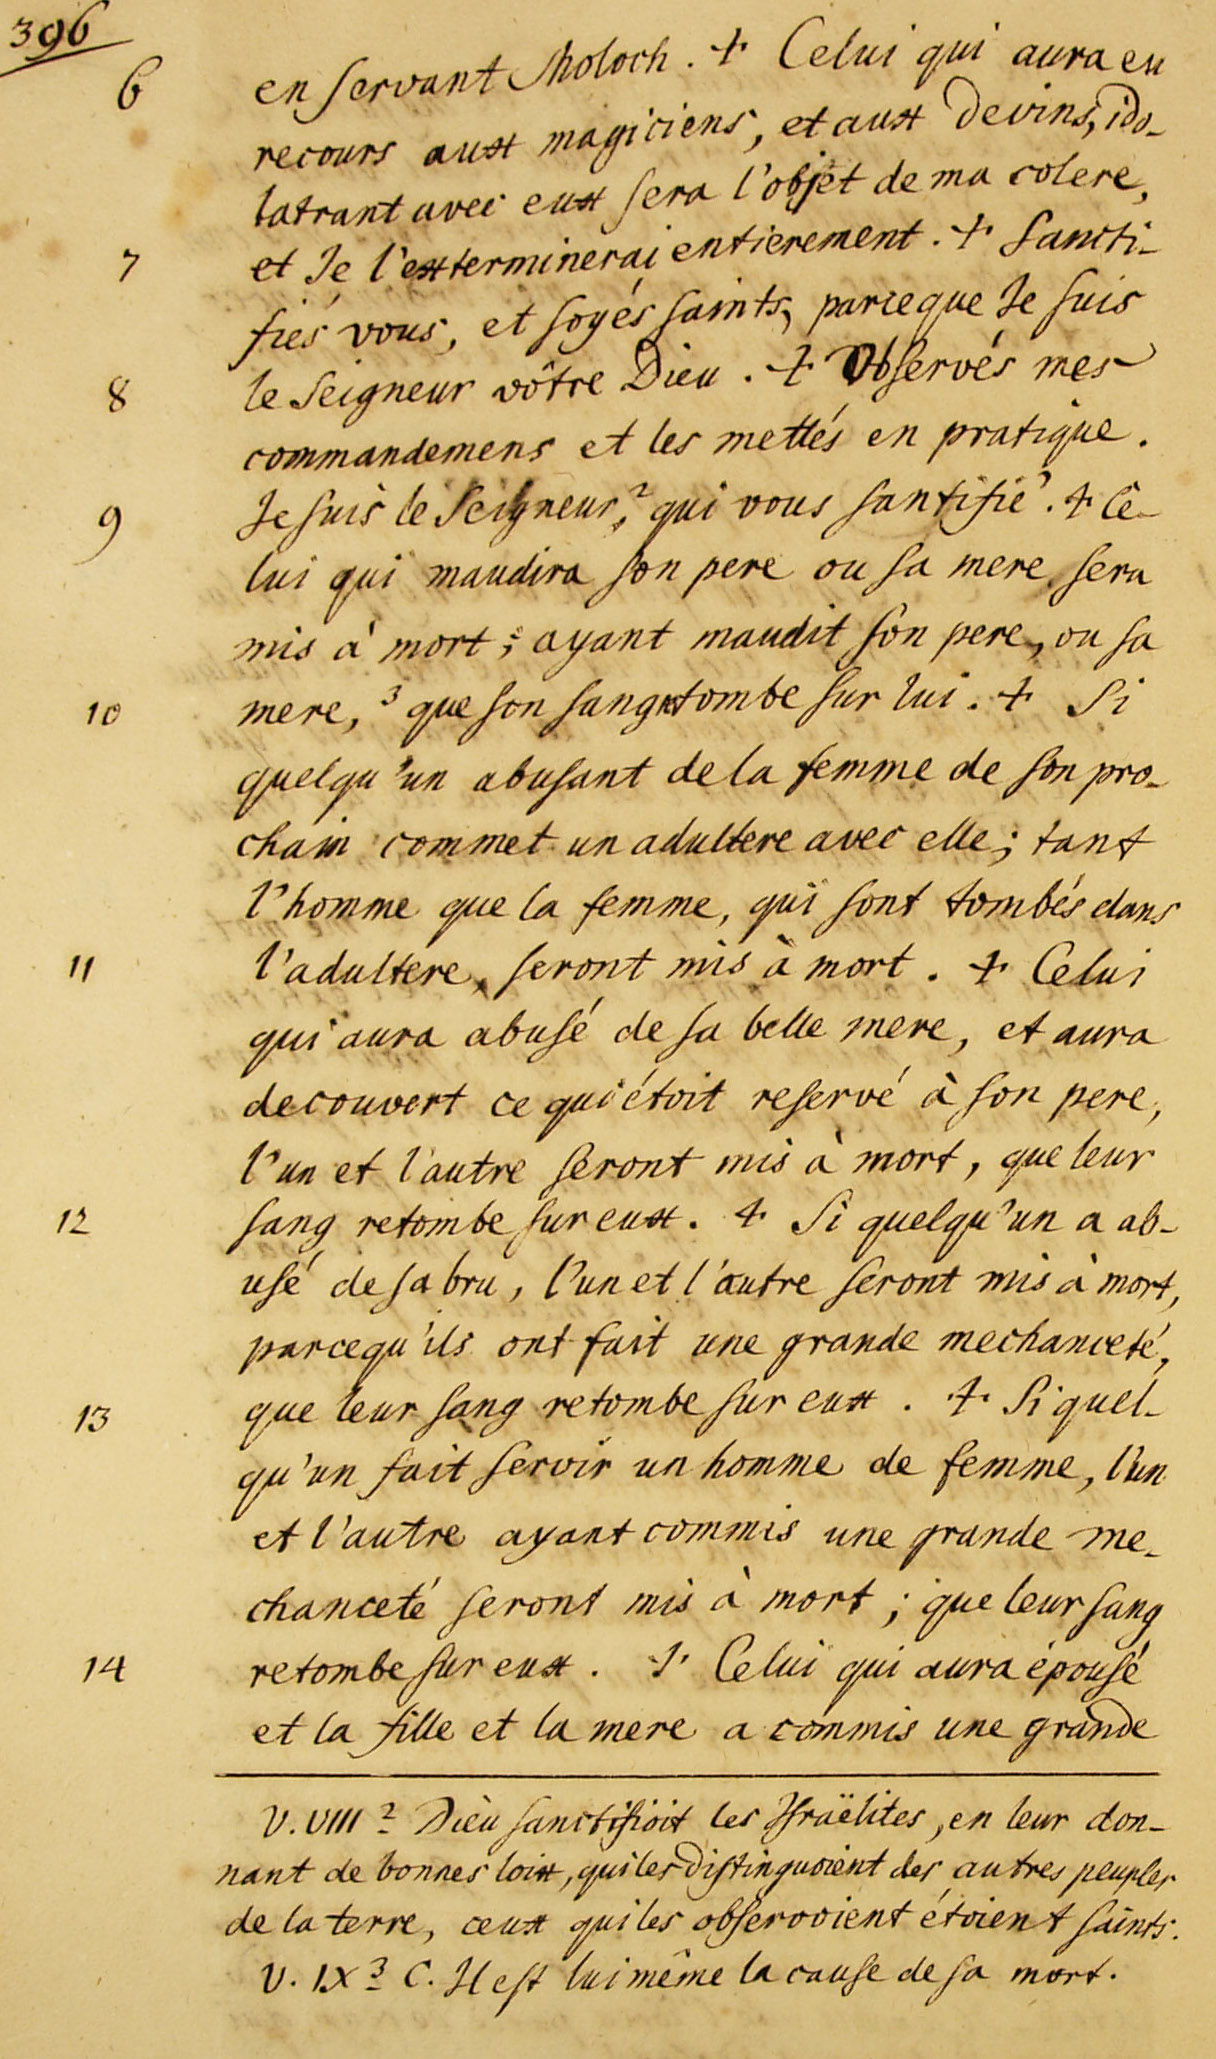 396
6 en servant Moloch. + Celui qui aura eu
recours aux magiciens, et aux Devins, ido-
latrant avec eux sera l'objet de ma colere,
7 et Je l'exterminerai entierement. + Sancti-
fiés vous, et soyés saints, parceque Je suis
8 le Seigneur vôtre Dieu. + Observés mes
commandemens et les mettés en pratique.
9 Je suis le Seigneur,² qui vous santifie. + Ce-
lui qui maudira son pere ou sa mere sera
mis à mort; ayant maudit son pere, ou sa
10 mere,³ que son sang retombe sur lui. + Si
quelqu'un abusant de la femme de son pro-
chain commet un adultere avec elle; tant
l'homme que la femme, qui sont tombés dans
11 l'adultere, seront mis à mort. + Celui
qui aura abusé de sa belle mere, et aura
decouvert ce qui étoit reservé à son pere,
l'un et l'autre seront mis à mort, que leur
12 sang retombe sur eux. + Si quelqu'un a ab-
usé de sa bru, l'un et l'autre seront mis à mort,
parcequ'ils ont fait une grande mechanceté,
13 que leur sang retombe sur eux. + Si quel-
qu'un fait servir un homme de femme, l'un
et l'autre ayant commis une grande me-
chanceté seront mis à mort; que leur sang
14 retombe sur eux. + Celui qui aura épousé
et la fille et la mere a commis une grande
V. VIII ² Dieu sanctifioit les Israëlites, en leur don-
nant de bonnes loix, qui les Distinguoient des autres peuples
de la terre, ceux qui les observoient étoient saints.
V. IX ³ C. Il est lui même la cause de sa mort.